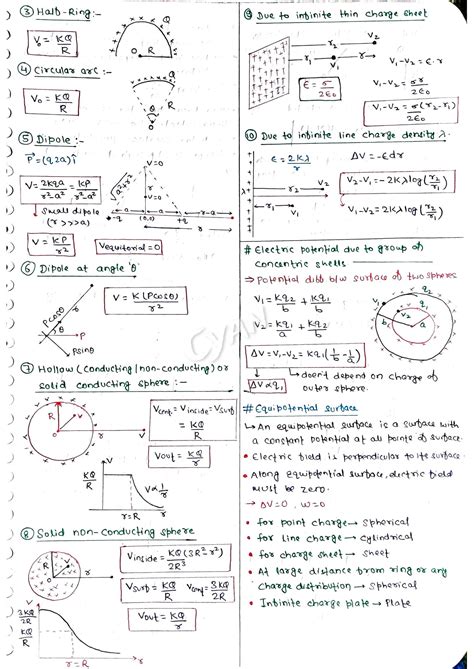 ③ Half-Ring:-
V₀ = KQ/R
KQ
O
R
④ Circular arc :-
V₀ = KQ/R
Q
R
⑤ Dipole :-
P⃗ = (q,2a)î
V = 2kqa/r²-a² = KP/r²-a²
Small dipole
(r>>>a)
V = KP/r²
V=0
V=0
√a²+r²
r
-q
a
(0,0)
a
+q
r-a
r
Vequitorial = 0
⑥ Dipole at angle 'θ'
Pcosθ
θ
P
Psinθ
V = K(Pcosθ)/r²
⑦ Hollow (conducting/non-conducting) or
solid conducting sphere :-
R
r
Vcent = Vinside = Vsurf
= KQ/R
Vout = KQ/r
KQ/R
V
V∝1/r
r=R
⑧ Solid non-conducting sphere
R
r
Vinside = KQ(3R²-r²)/2R³
Vsurf = KQ/R
Vcent = 3KQ/2R
Vout = KQ/r
V
3KQ/2R
KQ/R
r=R
⑨ Due to infinite thin charge sheet
r₁
V₁
r
r₂
V₂
E = σ/2ε₀
V₁-V₂ = E.r
V₁-V₂ = σr/2ε₀
V₁-V₂ = σ(r₂-r₁)/2ε₀
⑩ Due to infinite line charge density λ.
E = 2Kλ/r
ΔV = -Edr
r₂
V₂
r₁
V₁
V₂-V₁ = -2Kλlog(r₂/r₁)
V₁-V₂ = 2Kλlog(r₂/r₁)
# Electric potential due to group of
concentric shells
⇒ Potential diff b/w surface of two spheres
V₁ = Kq₂/b + Kq₁/b
V₂ = Kq₁/a + Kq₂/b
ΔV = V₁-V₂ = Kq₁(1/b - 1/a)
ΔV∝q₁
doesn't depend on charge of
outer sphere.
V₁
q₂
q₁
V₂
b
a
# Equipotential surface
↳ An equipotential surface is a surface with
a constant potential at all points of surface.
• Electric field is perpendicular to its surface.
• Along equipotential surface, electric field
must be zero.
→ ΔV=0, W=0
• for point charge → Spherical
• for line charge → Cylindrical
• for charge sheet → sheet
• At large distance from ring or any
charge distribution → Spherical
• Infinite charge plate → Plate
CYAN